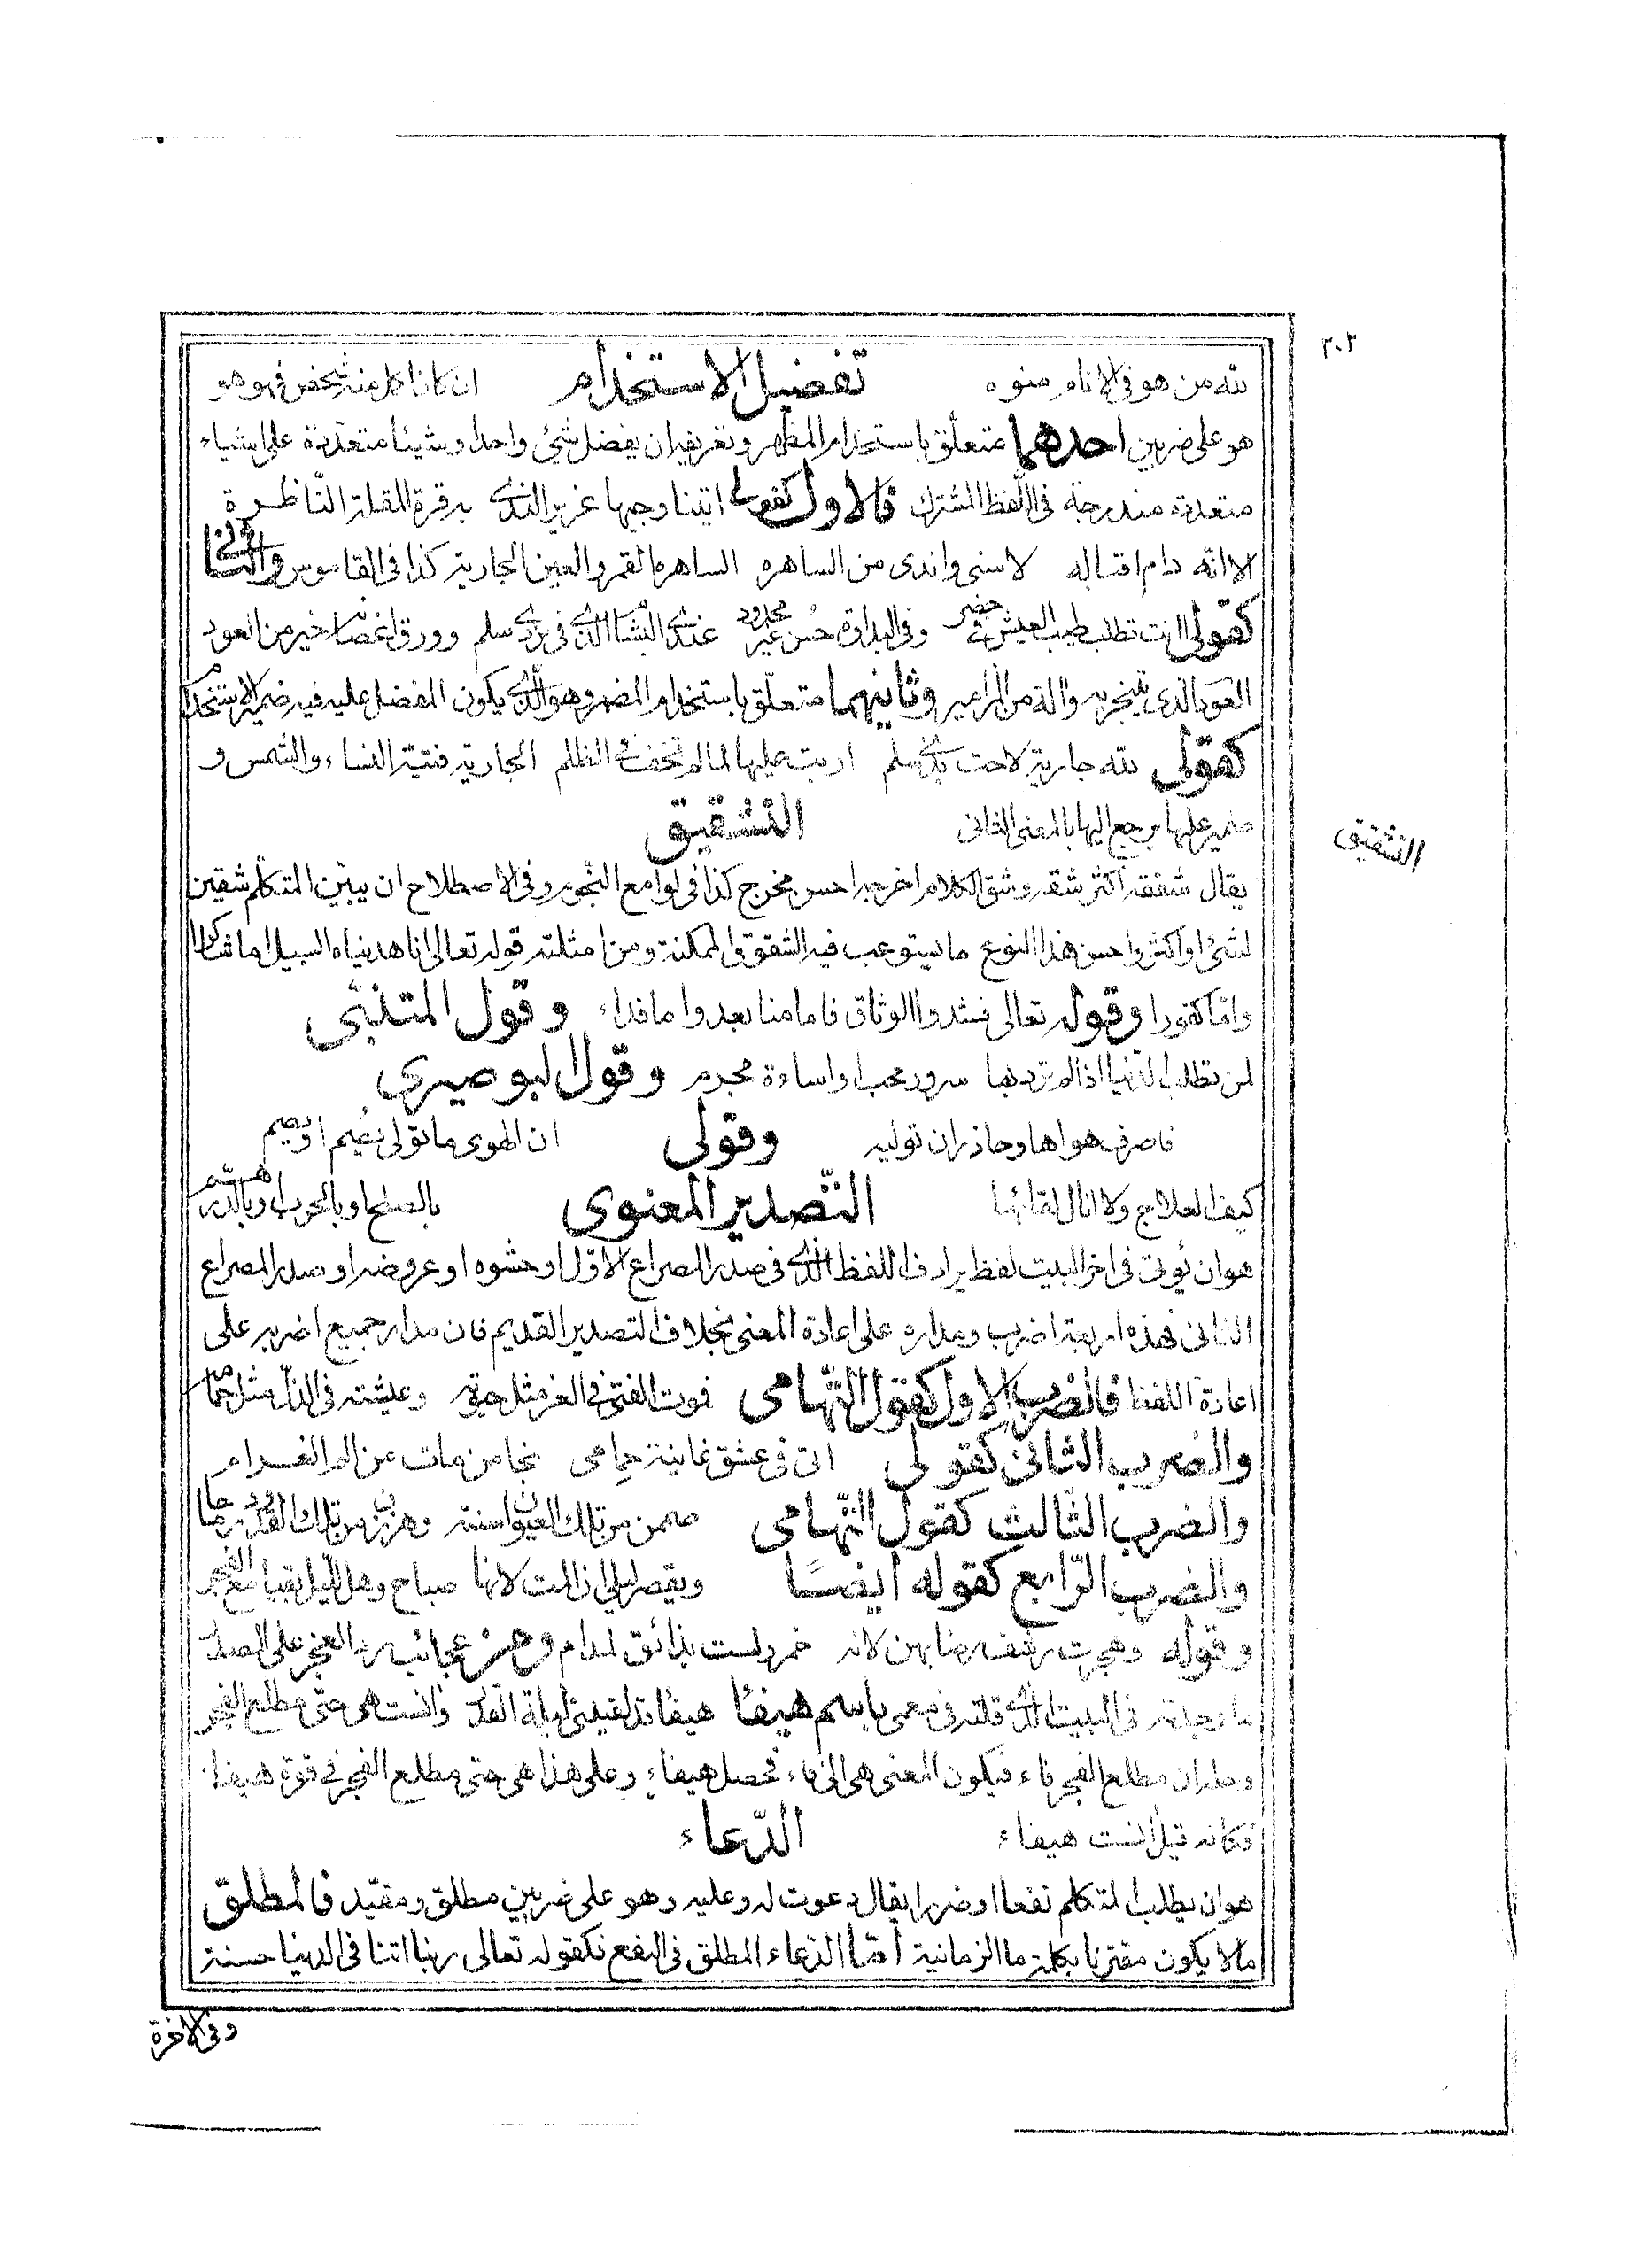 ٢٠٢
لله من هو في الاناه منوه تفضيل الاستخدام ان كانا كل منه شخص فهو هو
هو على ضربين احدهما متعلّق باستخدام المظهر وتعريفه ان يفضل شئ واحد او شيئا متعددة على اشياء
متعددة مندرجة في اللفظ المشترك فالاول كقولى اتينا وجيها غزير الندى به قرة المقلة النّاظرة
الا انّه دام اقباله لاسنى واندى من الساهره الساهره القمر والعين الجارية كذا في القاموس والثانى
كقولى انت تطلب طيب العيش في حضر وفي البداوة حسن غير مجلوب عندى البشام الذى في برى ذى سلم وورق اغصانه خير من العود
العود الذى يتبخر به وآلة من المزامير وثانيهما متعلّق باستخدام المضمر وهو الذى يكون المفضل عليه فيه ضمير الاستخدام
كقولى لله جارية لاحت بذى سلم اربت عليها لما لم تخف في الظلم الجارية فتية النساء والشمس و
ضمير عليها يرجع اليها بالمعنى الثانى التشقيق
التشقيق
يقال شققه اكثر شقه وشق الكلام اخرجه احسن مخرج كذا في لوامع النجوم وفي الاصطلاح ان يبيّن المتكلّم شقين
لشئ او اكثر واحسن هذا النوع ما يستوعب فيه الشقوق الممكنة ومن امثلته قوله تعالى انا هديناه السبيل اما شاكرا
وامّا كفورا وقوله تعالى فشدوا الوثاق فاما منا بعد واما فداء وقول المتنبّى
لمن تطلب الدّنيا اذا لم ترد بها سرور محب او اساءة مجرم وقول البوصيرى
فاصرف هواها وحاذر ان توليه ان الهوى ما تولى يصم او يصم وقولى
كيف العلاج ولا انال لقائها بالصلح او بالحرب او بالدرهم التّصدير المعنوى
هو ان يؤتى في اخر البيت لفظ يرادف اللفظ الذى في صدر المصراع الاوّل او حشوه او عروضه او صدر المصراع
الثانى فهذه اربعة اضرب ومداره على اعادة المعنى بخلاف التصدير القديم فان مدار جميع اضربه على
اعادة اللفظ فالضرب الاول كقول التّهامى فموت الفتى في العز مثل حيوته وعيشته في الذّل مثل حمامه
والضرب الثانى كقولى اتى في عشق غانية حمامى نجا من مات عن الم الغرام
والضرب الثّالث كقول التّهامى ضمن من تلك العيون اسنة وهززن من تلك القدود رماحا
والضرب الرّابع كقوله ايضًا ويقصر ليلى ان المت لانها صباح وهل لليل بقيا مع الفجر
وقوله وهجرت رشف رضابهن لانه خمر ولست بذائق لمدام ومن عجائب رد العجز على الصدر
ما وجدته في البيت الذى قلته في معمى باسم هيفا هيفا قد لقيتنى ليلة القدر وآنست هى حتى مطلع الفجر
وحله ان مطلع الفجر فاء فيكون المعنى هى الى فاء فحصل هيفاء وعلى هذا هى حتى مطلع الفجر في قوة هيفاء
فكانه قيل آنست هيفاء الدّعاء
هو ان يطلب المتكلم نفعا او ضرا يقال دعوت له وعليه وهو على ضربين مطلق ومقيّد فالمطلق
ما لا يكون مقترنا بكلمة ما الزمانية امّا الدّعاء المطلق في النفع فكقوله تعالى ربنا اتنا في الدنيا حسنة
وفي الاخرة